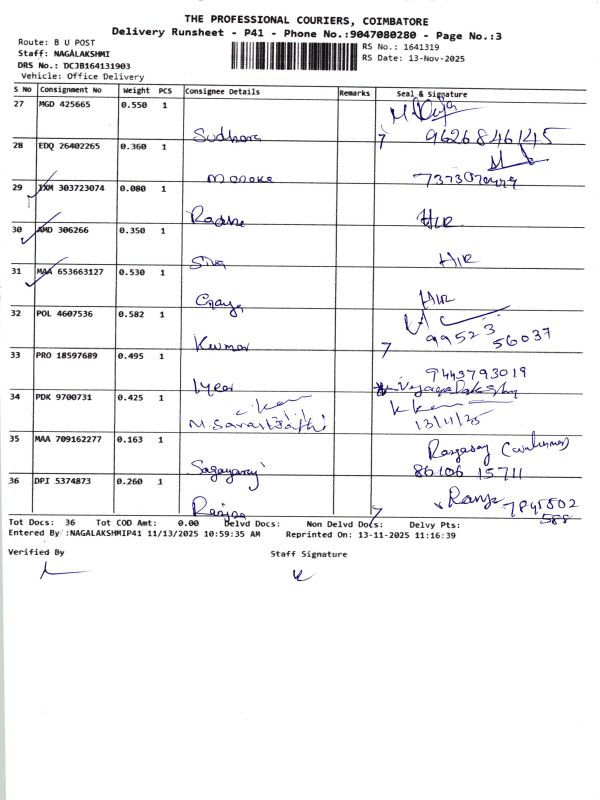 THE PROFESSIONAL COURIERS, COIMBATORE
Delivery Runsheet - P41 - Phone No.:9047080280 - Page No.:3
Route: B U POST
Staff: NAGALAKSHMI
DRS No.: DCJB164131903
Vehicle: Office Delivery
RS No.: 1641319
RS Date: 13-Nov-2025
S No Consignment No Weight PCS Consignee Details Remarks Seal & Signature
27 MGD 425665 0.550 1
9626846145
28 EDQ 26402265 0.360 1
29 IXM 303723074 0.080 1
Radha H/R
30 AMD 306266 0.350 1
Siva H/R
31 MAA 653663127 0.530 1
H/R
32 POL 4607536 0.582 1
Kumar 99523 56037
33 PRO 18597689 0.495 1
Iyer 9443793019
Vijayalakshmi
34 PDK 9700731 0.425 1
M. Saraswathi 13/11/25
35 MAA 709162277 0.163 1
86106 15711
36 DPI 5374873 0.260 1
Ranjan
Tot Docs: 36 Tot COD Amt: 0.00 Delvd Docs: Non Delvd Docs: Delvy Pts:
Entered By :NAGALAKSHMIP41 11/13/2025 10:59:35 AM Reprinted On: 13-11-2025 11:16:39
Verified By Staff Signature